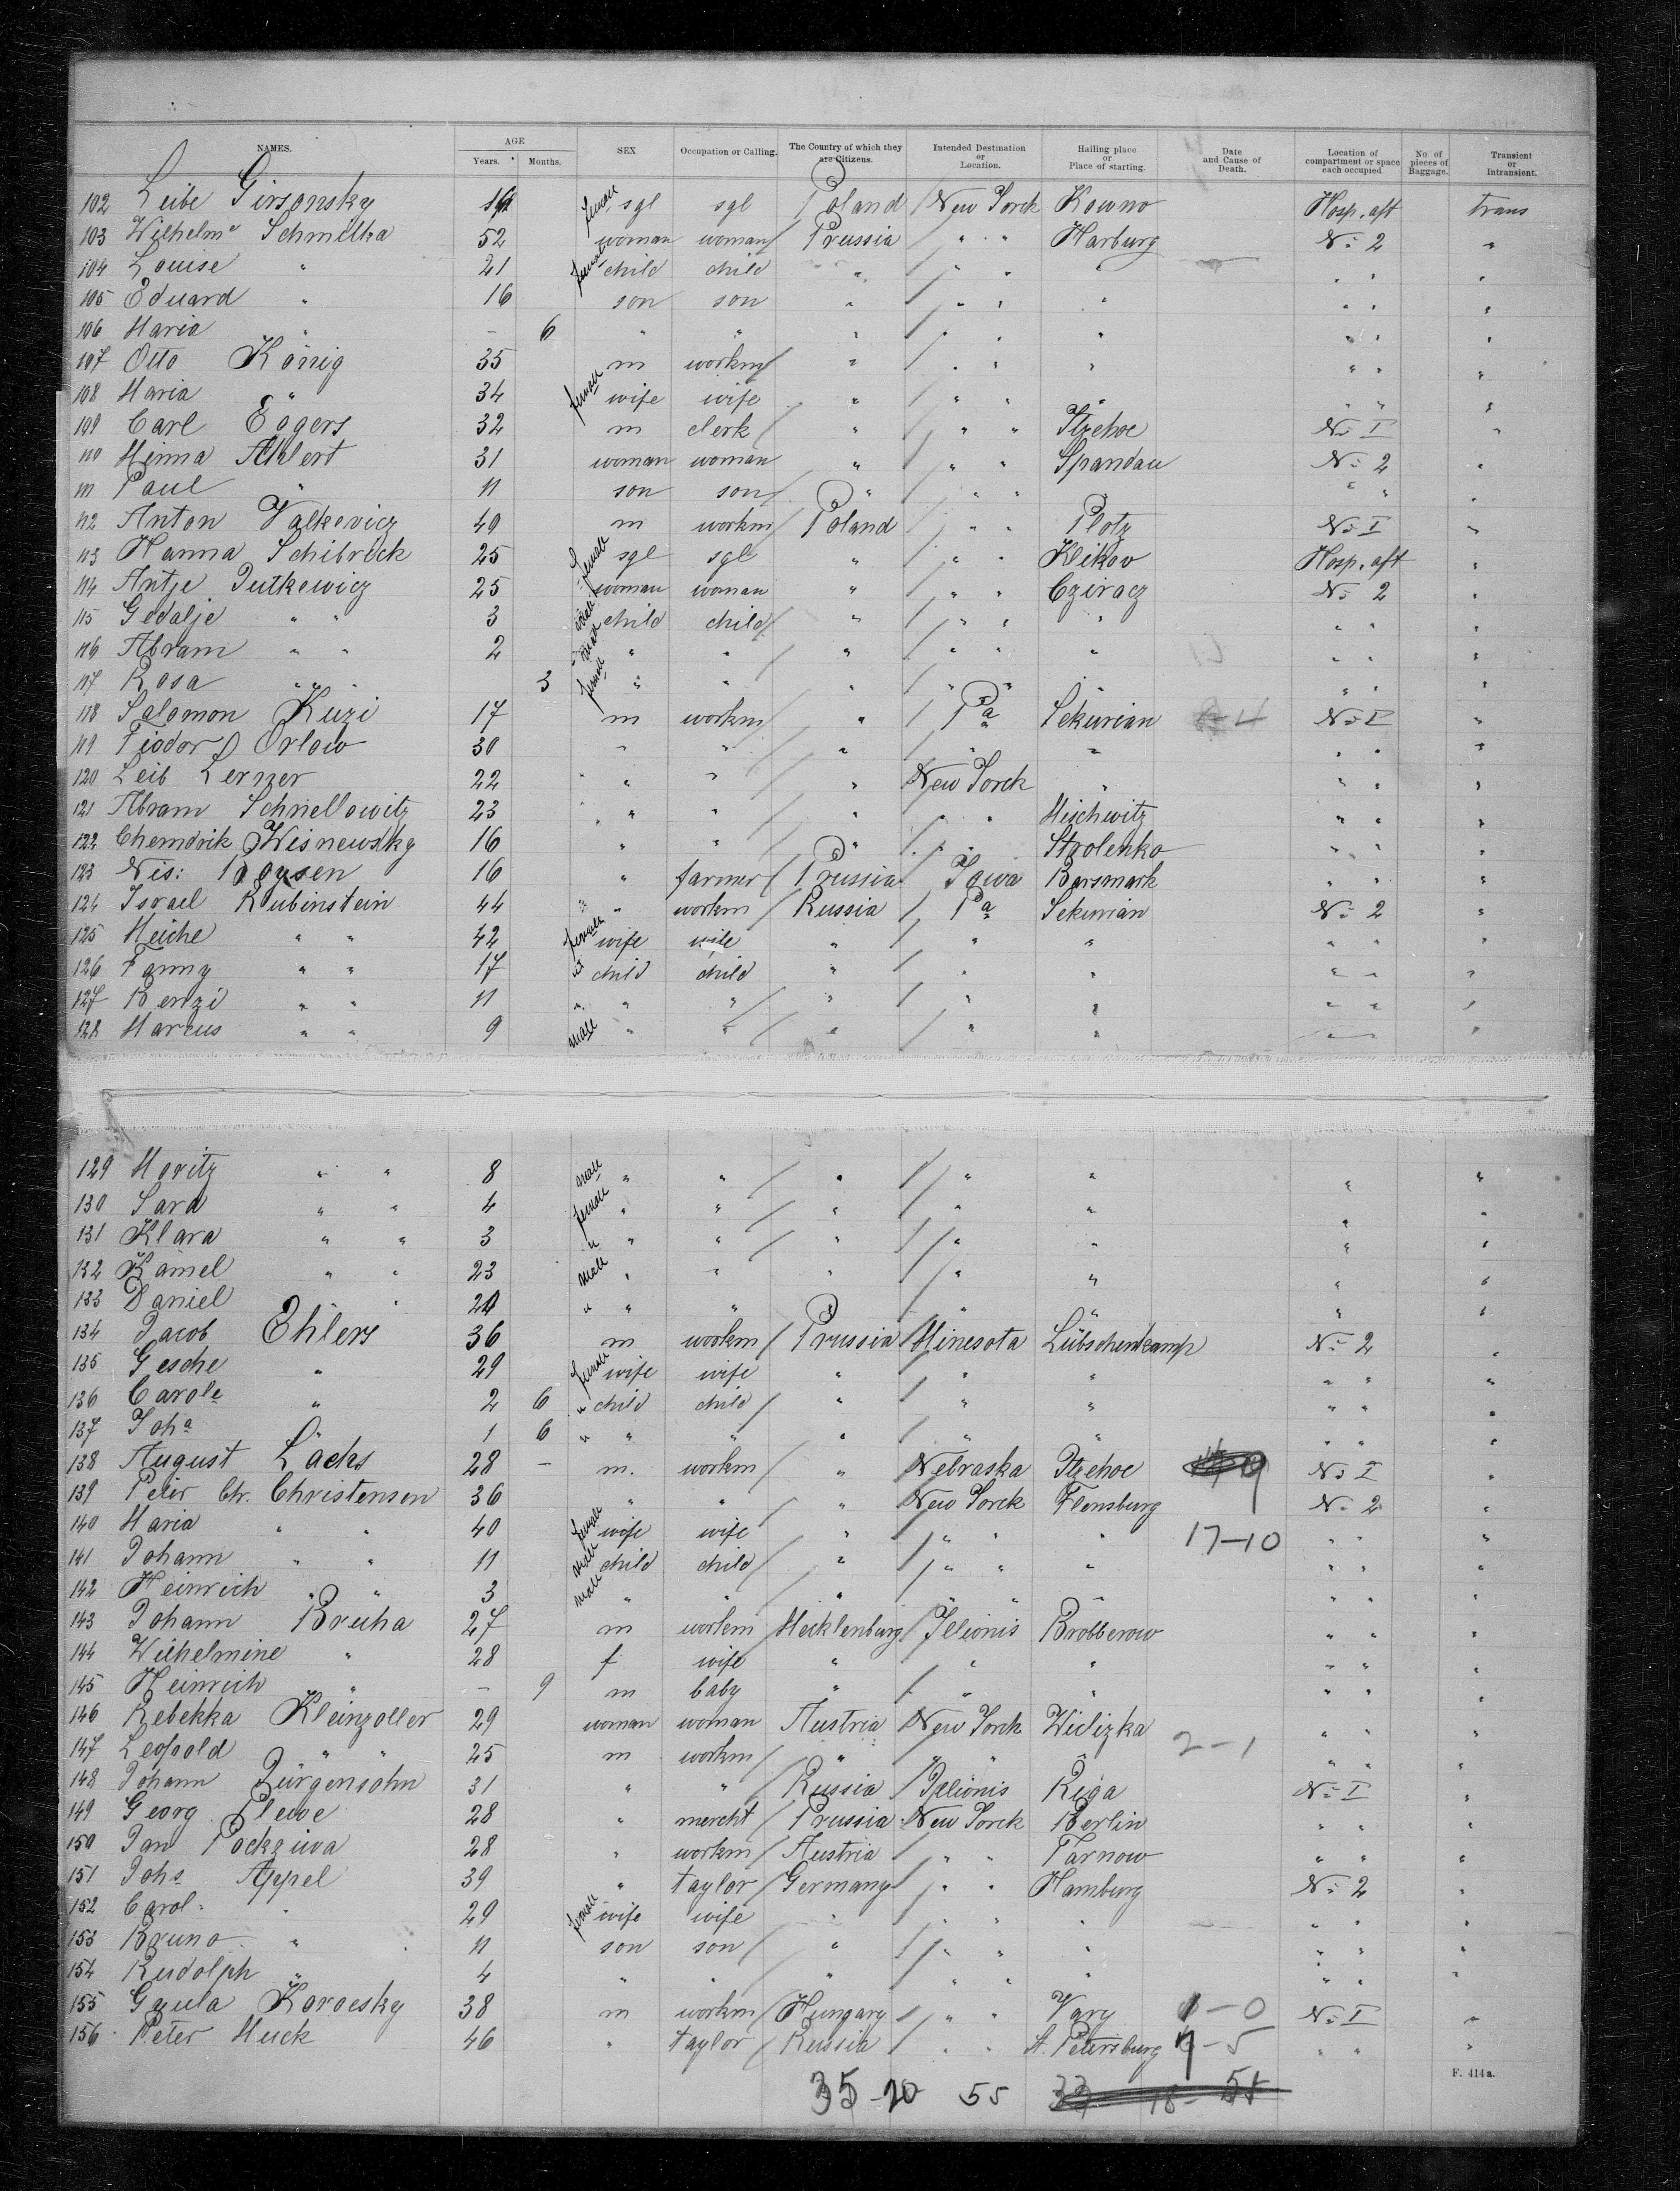 NAMES. AGE Years. Months. SEX Occupation or Calling. The Country of which they are Citizens. Intended Destination or Location. Hailing place or Place of starting. Date and Cause of Death. Location of compartment or space each occupied. No. of pieces of Baggage. Transient or Intransient.
102 Leibe Girsonsky female sgl sgl Poland New Yorck Kowno Hosp. aft trans
103 Wilhelme Schmelka 52 woman woman Prussia " " Harburg No 2 "
104 Louise " 21 female child child " " " " " " "
105 Eduard " 16 son son " " " " " " "
106 Maria " - 6 " " " " " " " " "
107 Otto König 35 m workm " " " " " " "
108 Maria " 34 female wife wife " " " " " " "
109 Carl Eggers 32 m clerk " " " Itzehoe No I "
110 Minna Ahlert 31 woman woman " " " Spandau No 2 "
111 Paul " 11 son son " " " " " "
112 Anton Valkevicz 40 m workm Poland " " Plotz No I "
113 Hanna Schibrock 25 female sgl sgl " " " Klikov Hosp. aft "
114 Antje Jutkewicz 25 " woman woman " " " Cziracz No 2 "
115 Gedalje " " 3 male child child " " " " " " "
116 Abram " " 2 male " " " " " " " " "
117 Rosa " " 3 female " " " " " " " " "
118 Salomon Kuzi 17 m workm " Pa Sekurian No I "
119 Fiodor Orlow 30 " " " " " " " "
120 Leib Lerner 22 " " " New Yorck " " " "
121 Abram Schnellowitz 23 " " " " " Mischwitz " " "
122 Chemdrik Wisnewsky 16 " " " " " Strolenko " " "
123 Nis: Boysen 16 " farmer Prussia Iowa Barsmark " " "
124 Israel Rubinstein 44 " workm Russia Pa Sekurian No 2 "
125 Meiche " " 42 female wife wife " " " " " "
126 Fanny " " 17 " child child " " " " " "
127 Benzi " " 11 " " " " " " " " "
128 Marcus " " 9 male " " " " " "
129 Moritz " " 8 male " " " " " " "
130 Sara " " 4 female " " " " " " "
131 Klara " " 3 " " " " " " " "
132 Kamel " " 23 male " " " " " " "
133 Daniel " " " " " " " " " "
134 Jacob Ehlers 36 m workm Prussia Minesota Lübschenkamp No 2 "
135 Gesche " 29 female wife wife " " " " " "
136 Carole " 2 6 " child child " " " " " "
137 Joha " 1 6 " " " " " " " " "
138 August Lachs 28 - m. workm " Nebraska Itzehoe No I "
139 Peter Chr. Christensen 36 " " " New Yorck Flensburg No 2 "
140 Maria " " 40 female wife wife " " " " 17-10 " " "
141 Johann " " 11 male child child " " " " " " "
142 Heinrich " " 3 male " " " " " " " " "
143 Johann Bruha 27 m workm Mecklenburg Jelionis Brobberow " " "
144 Wilhelmine " 28 f wife " " " " " "
145 Heinrich " - 9 m baby " " " " " "
146 Rebekka Kleinzoller 29 woman woman Austria New Yorck Wielizka " " "
147 Leopold " " 25 m workm " " " " 2-1 " " "
148 Johann Jürgensohn 31 " " Russia Jelionis Riga No I "
149 Georg Plewe 28 " mercht Prussia New Yorck Berlin " " "
150 Jan Pockziwa 28 " workm Austria " " Tarnow " " "
151 Johs Appel 39 " taylor Germany " " Hamburg No 2 "
152 Carol. " 29 female wife wife " " " " " " "
153 Bruno " 11 son son " " " " " " "
154 Rudolph " 4 " " " " " " " " "
155 Gyula Korocsky 38 m workm Hungary " " Vary 1-0 No I "
156 Peter Huck 46 " taylor Russia " " St. Petersburg " " "
F. 414a.
35-20 55